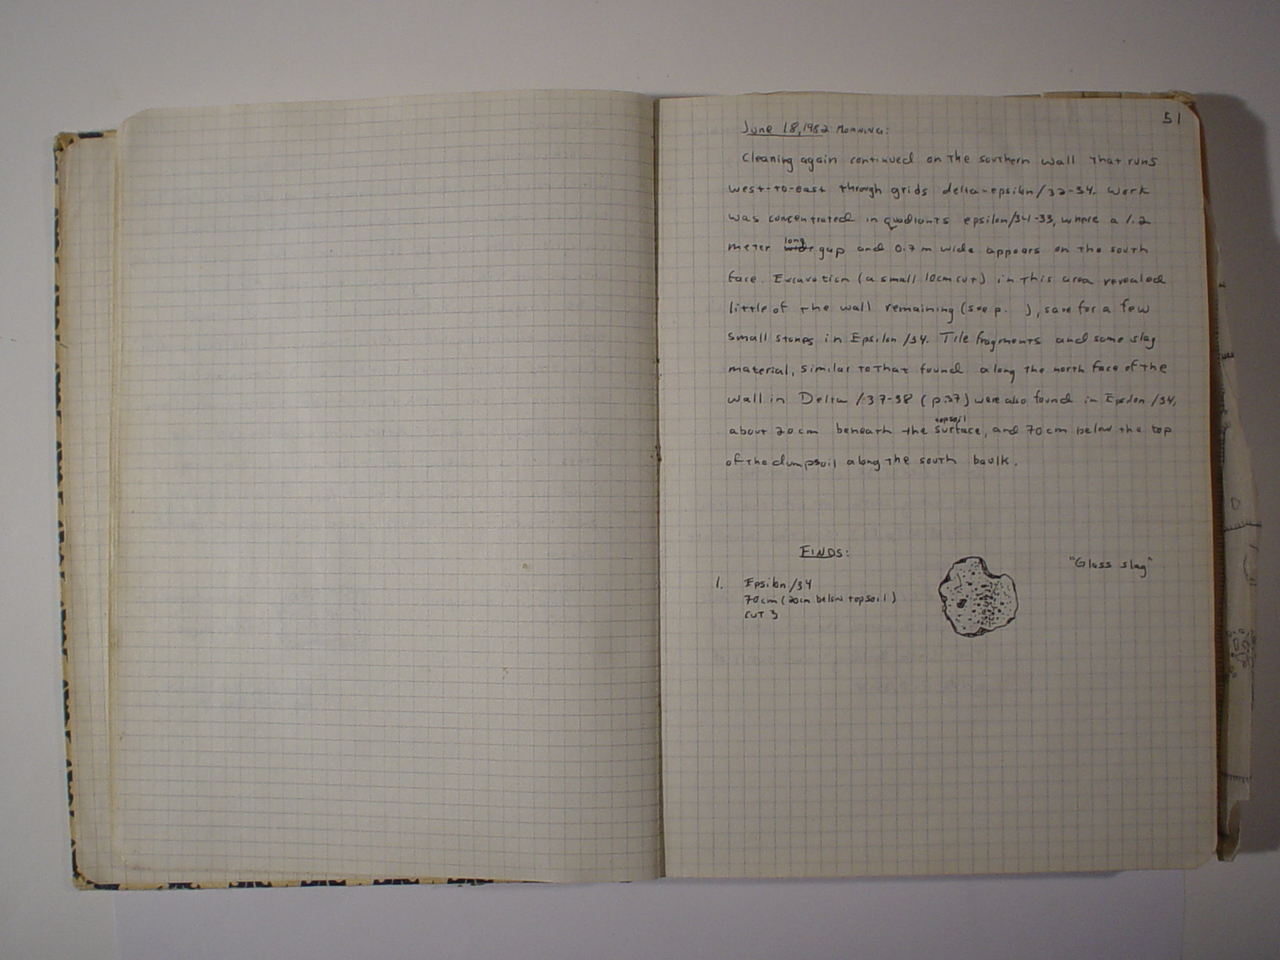 51
June 18, 1982 MORNING:
Cleaning again continued on the southern wall that runs
west-to-east through grids delta-epsilon/32-34. Work
was concentrated in quadrants epsilon/34-33, where a 1.2
meter long gap and 0.7 m wide appears on the south
face. Excavation (a small 10cm cut) in this area revealed
little of the wall remaining (see p. ), save for a few
small stones in Epsilon /34. Tile fragments and some slag
material, similar to that found along the north face of the
wall in Delta /37-38 (p.27) were also found in Epsilon /34,
about 20 cm beneath the topsoil surface, and 70cm below the top
of the dumpsoil along the south baulk.
FINDS:
"Glass slag"
1. Epsilon/34
70cm (20cm below topsoil)
CUT 3